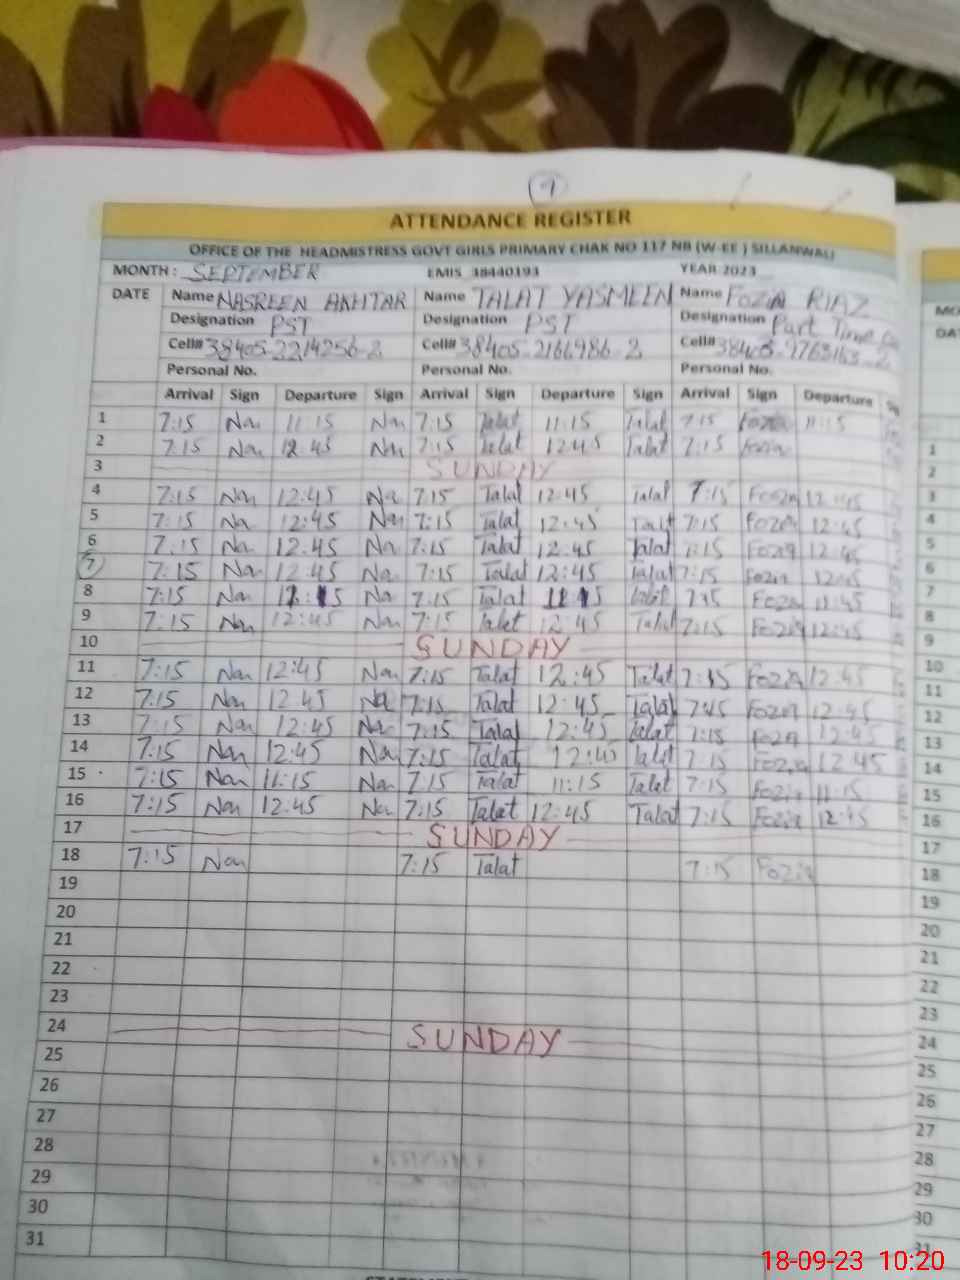 9
ATTENDANCE REGISTER
OFFICE OF THE HEADMISTRESS GOVT GIRLS PRIMARY CHAK NO 117 NB (W-EE ) SILLANWALI
MONTH : SEPTEMBER EMIS 38440193 YEAR 2023
DATE Name NASREEN AKHTAR Name TALAT YASMEEN Name FOZIA RIAZ
Designation PST Designation PST Designation Part Time
Cell# 38405-2214256-2 Cell# 38405-2166986-2 Cell# 38403-9763163-2
Personal No. Personal No. Personal No.
Arrival Sign Departure Sign Arrival Sign Departure Sign Arrival Sign Departure
1 7:15 Nan 11:15 Nan 7:15 Talat 11:15 Talat 7:15 Fozia 11:15
2 7:15 Nan 12:45 Nan 7:15 Talat 12:45 Talat 7:15 Fozia
3 SUNDAY
4 7:15 Nan 12:45 Na 7:15 Talat 12:45 Talat 7:15 Fozia 12:45
5 7:15 Na 12:45 Nan 7:15 Talat 12:45 Talat 7:15 Fozia 12:45
6 7:15 Na 12:45 Na 7:15 Talat 12:45 Talat 7:15 Fozia 12:45
7 7:15 Nan 12:45 Na 7:15 Talat 12:45 Talat 7:15 Fozia 12:45
8 7:15 Na Na 7:15 Talat Talat 7:15 Fozia
9 7:15 Nan 12:45 Nan 7:15 Talat 12:45 Talat 7:15 Fozia 12:45
10 SUNDAY
11 7:15 Nan 12:45 Nan 7:15 Talat 12:45 Talat 7:15 Fozia 12:45
12 7:15 Nan 12:45 Na 7:15 Talat 12:45 Talat 7:15 Fozia 12:45
13 7:15 Nan 12:45 Na 7:15 Talat 12:45 Talat 7:15 Fozia 12:45
14 7:15 Nan 12:45 Nan 7:15 Talat Talat 7:15 Fozia 12:45
15 7:15 Nan 11:15 Nan 7:15 Talat 11:15 Talat 7:15 Fozia 11:15
16 7:15 Nan 12:45 Na 7:15 Talat 12:45 Talat 7:15 Fozia 12:45
17 SUNDAY
18 7:15 Nan 7:15 Talat 7:15 Fozia
19
20
21
22
23
24 SUNDAY
25
26
27
28
29
30
31
1
2
3
4
5
6
7
8
9
10
11
12
13
14
15
16
17
18
19
20
21
22
23
24
25
26
27
28
29
30
31
18-09-23 10:20